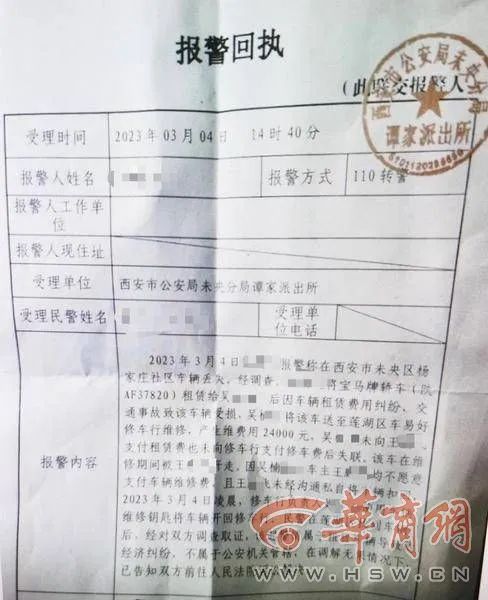 报警回执
(此联交报警人
西安市公安局未央分局
谭家派出所
受理时间 2023年03月04日 14时40分
报警人姓名 报警方式 110转警
报警人工作单位
报警人现住址
受理单位 西安市公安局未央分局谭家派出所
受理民警姓名 受理单位电话
报警内容
2023年3月4日 报警称在西安市未央区杨
家庄社区车辆丢失，经调查， 将宝马牌轿车(陕
AF37820)租赁给吴 后因车辆租赁费用纠纷、交
通事故致该车辆受损，吴 将该车送至莲湖区车易好
修车行维修，产生维费用24000元，吴 未向王
支付租赁费也未向修车行支付修车费后失联，该车在维
修期间被王 开走，因吴 车主王 均不愿意
支付车辆维修费，且王 未经沟通私自将车辆
2023年3月4日凌晨，修车行负责人
维修钥匙将车辆开回修 民警在
后，经对双方调查取证， 属于
经济纠纷，不属于公安机关管辖，在调解无果情况下，
已告知双方前往人民法院
華商網
WWW.HSW.CN